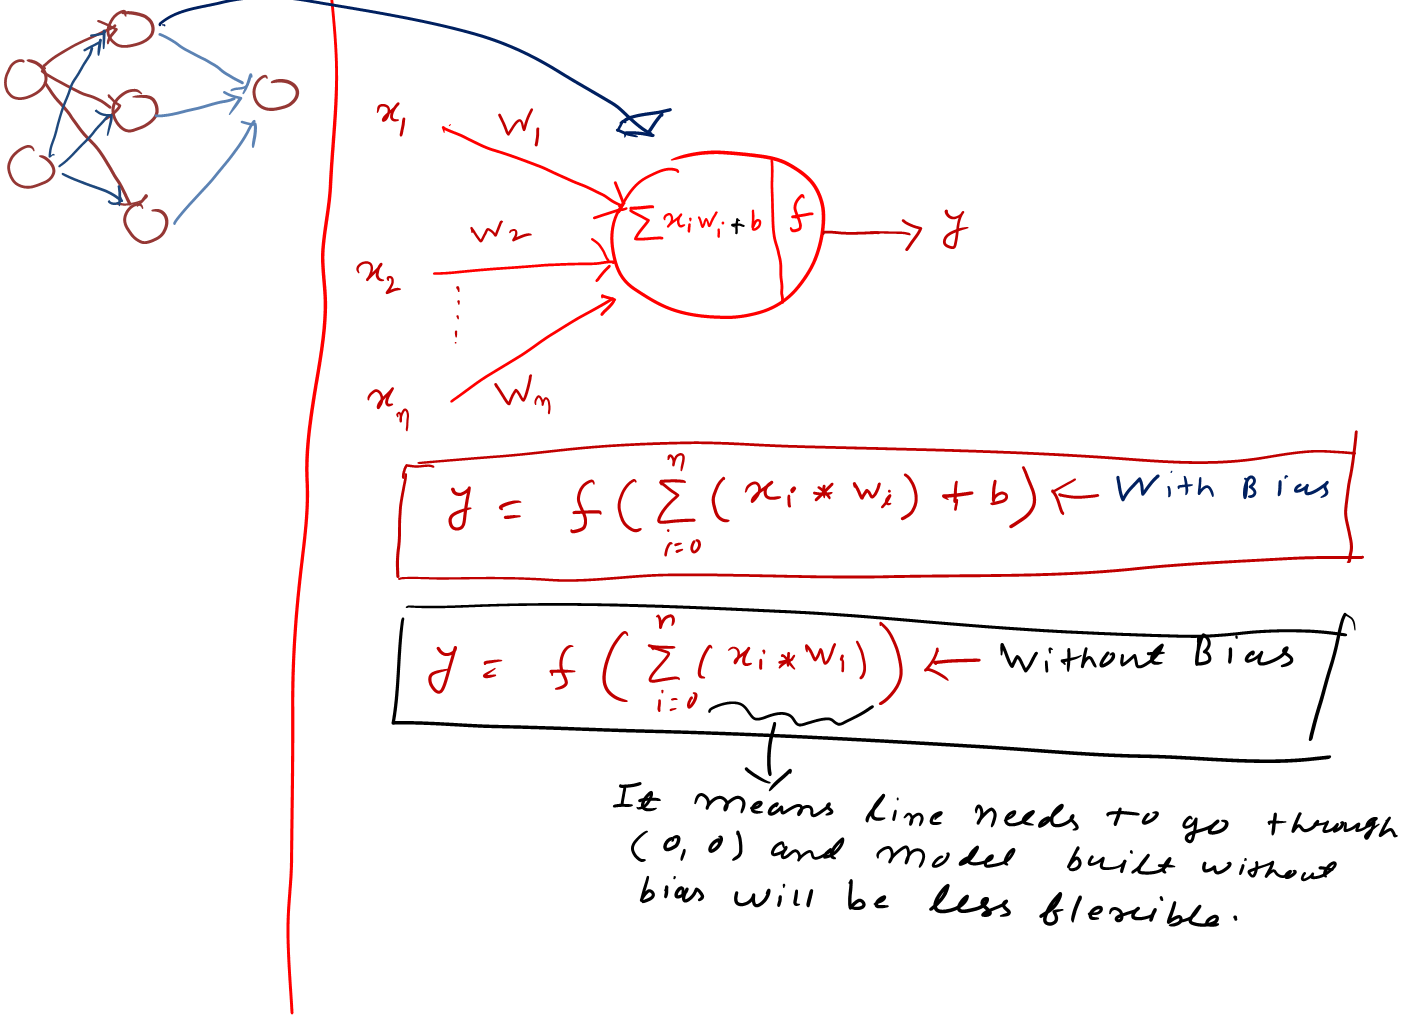 x₁ W₁
∑ xᵢwᵢ + b f y
x₂ W₂
xₙ Wₙ
y = f ( ∑ⁿᵢ₌₀ ( xᵢ * wᵢ ) + b ) ← With Bias
y = f ( ∑ⁿᵢ₌₀ ( xᵢ * W₁ ) ) ← Without Bias
It means line needs to go through
(0, 0) and model built without
bias will be less flexible.